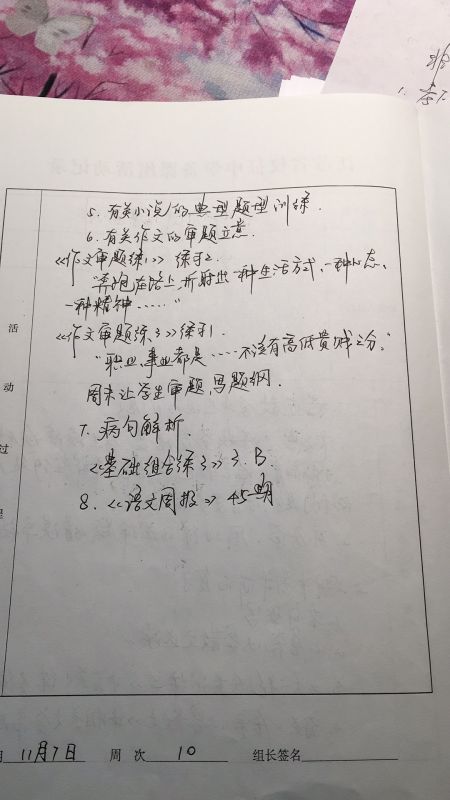 5. 有关小说的典型题型训练.
6. 有关作文的审题立意.
《作文审题练1》练习2.
"奔跑在路上,折射出一种生活方式、一种心态、
一种精神……"
《作文审题练3》练习1.
"职业、事业都是……不该有高低贵贱之分。"
周末让学生审题,写题纲.
7. 病句解析.
《基础组合练3》3. B.
8.《语文周报》45期
活
动
过
程
期 11月7日 周 次 10 组长签名